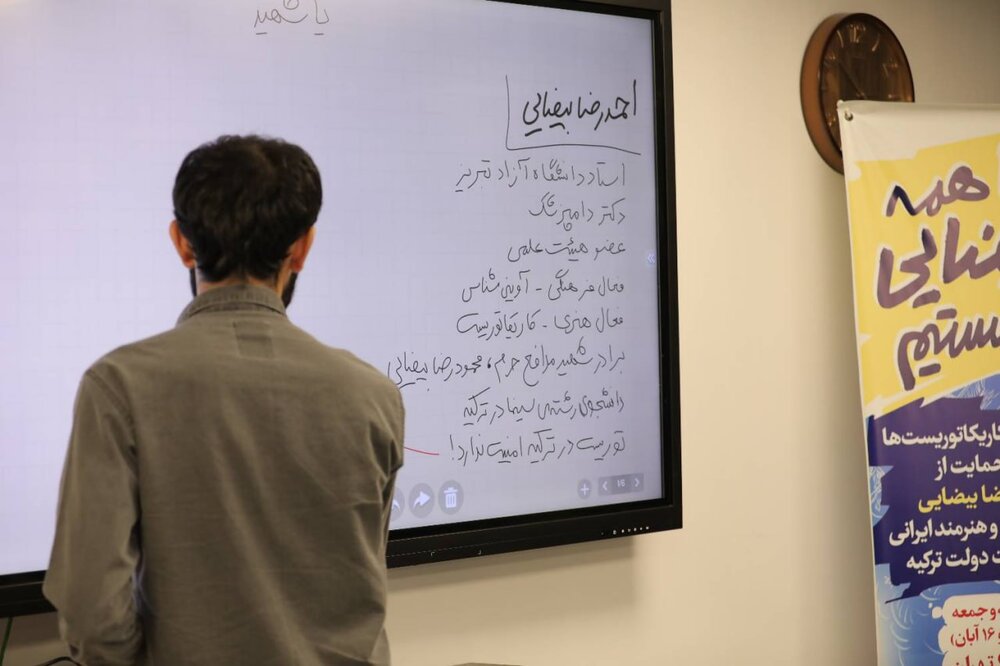 یا شهید
احمدرضا بیضایی
استاد دانشگاه آزاد تبریز
دکتر دامپزشک
عضو هیئت علمی
فعال فرهنگی - آوینی شناس
فعال هنری - کاریکاتوریست
برادر شهید مدافع حرم، محمودرضا بیضایی
دانشجوی رشته‌ی سینما در ترکیه
توریست در ترکیه امنیت ندارد!
1/6
همه
کاریکاتوریست‌ها
حمایت از
بیضایی
و هنرمند ایرانی
دولت ترکیه
و جمعه
۱۶ آبان)